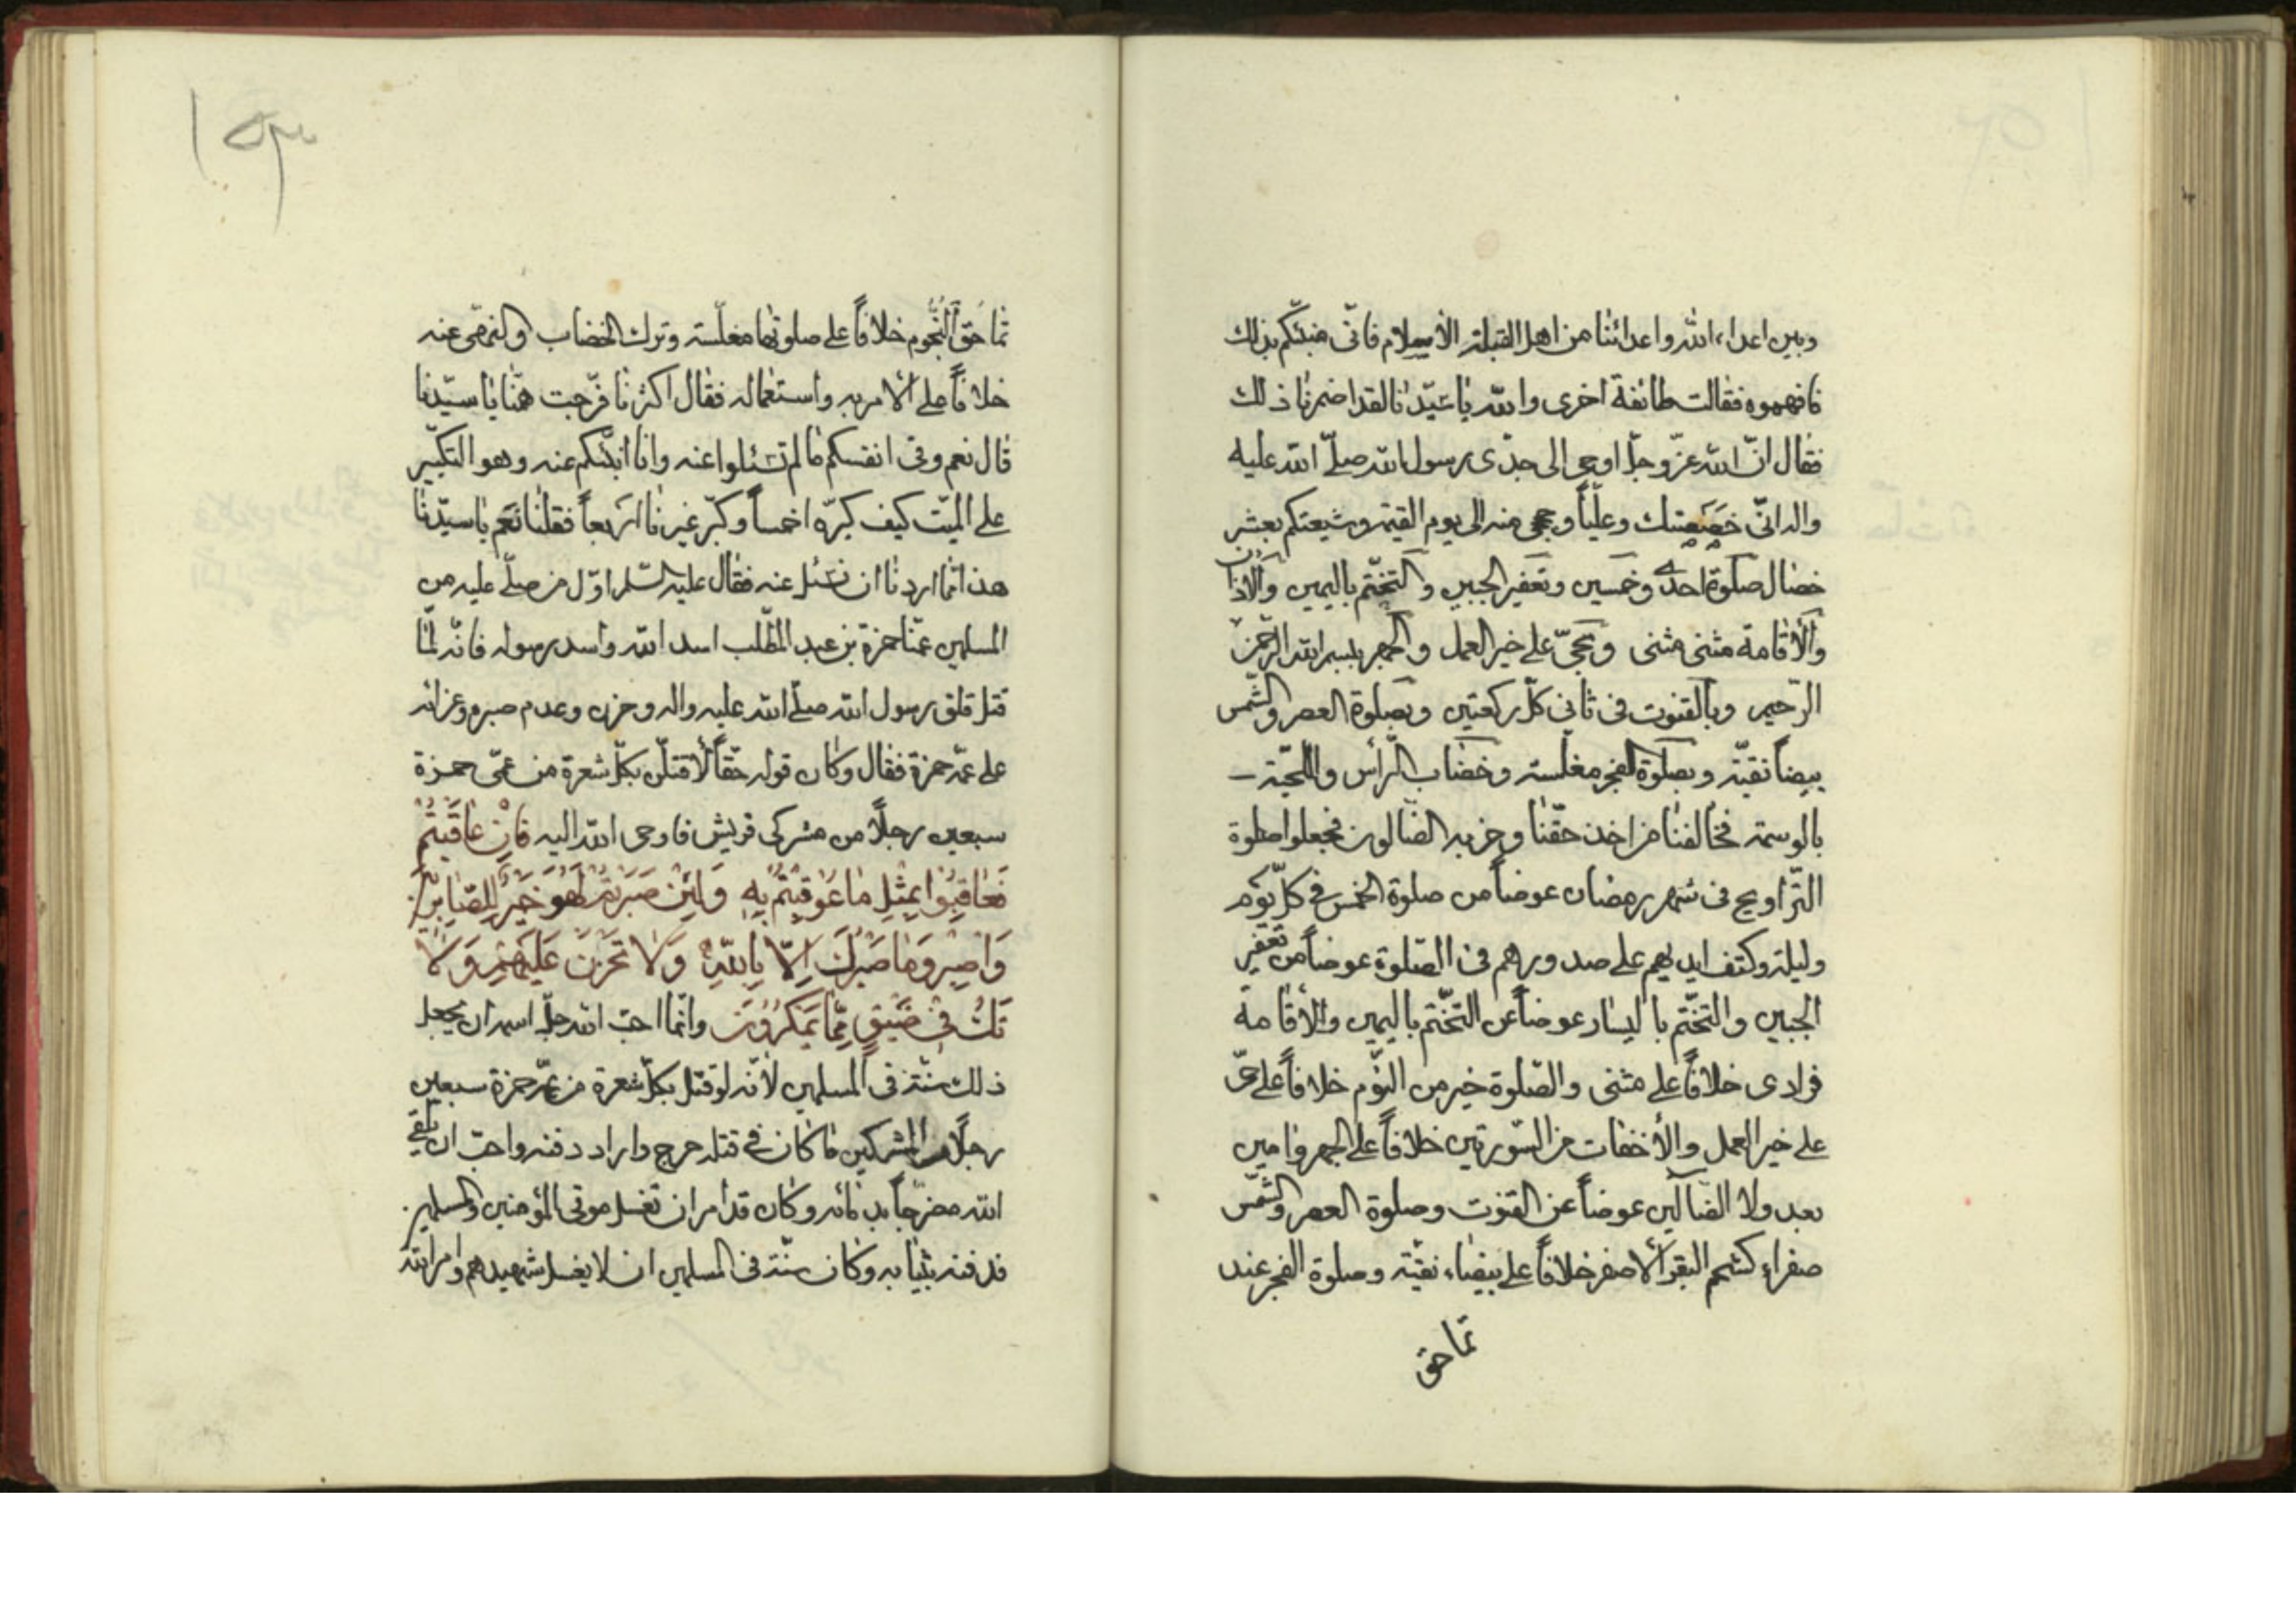 وبين اعداء الله واعدائنا من اهل القبلة الاسلام فانّى منبئكم بذلك
فافهموه فقالت طائفة اخرى والله يا سيّدنا لقد اضمرنا ذلك
فقال انّ الله عزّ وجلّ اوحى الى جدّى رسول الله صلّى الله عليه
واله انّى خصصتك وعليّاً وحججى منه الى يوم القيمة وشيعتكم بعشر
خصال صلوة احدى وخمسين وتعفير الجبين والتختّم باليمين والاذان
والاقامة مثنى مثنى وحىّ على خير العمل والجهر ببسم الله الرّحمن
الرّحيم وبالقنوت فى ثانى كلّ ركعتين وبصلوة العصر والشّمس
بيضاً نقيّة وبصلوة الفجر مغلّسة وخضاب الرّأس واللّحية
بالوسمة فخالفنا من اخذ حقّنا وحزبه الضّالون فجعلوا صلوة
التّراويح فى شهر رمضان عوضاً من صلوة الخمس فى كلّ يوم
وليلة وكتف ايديهم على صدورهم فى الصّلوة عوضاً من تعفير
الجبين والتختّم باليسار عوضاً عن التختّم باليمين والأقامة
فرادى خلافاً على مثنى والصّلوة خير من النّوم خلافاً على حىّ
على خير العمل والأخفات من السّورتين خلافاً على الجهر وامين
بعد ولا الضّالّين عوضاً عن القنوت وصلوة العصر والشّمس
صفراء كشحم البقر الاصفر خلافاً على بيضاء نقيّة وصلوة الفجر عند
تماحق
١٥٣
تماحق النّجوم خلافاً على صلوتها مغلّسة وترك الخضاب والنهى عنه
خلافاً على الامر به واستعماله فقال اكثرنا فرّجت همّنا يا سيّدنا
قال نعم وفى انفسكم ما لم تسئلوا عنه وانا انبّئكم عنه وهو التكبير
على الميّت كيف كبرّه اخمساً وكبّر غيرنا اربعاً فقلنا نعم يا سيّدنا
هذا ممّا اردنا ان نسئل عنه فقال عليه السّلم اوّل من صلّى عليه من
المسلمين عمّنا حمزة بن عبد المطّلب اسد الله واسد رسوله فانّه لمّا
قتل قلق رسول الله صلّى الله عليه واله وحزن وعدم صبره وعزائه
على عمّه حمزة فقال وكان قوله حقّاً لأقتلنّ بكلّ شعرة من عمّى حمزة
سبعين رجلاً من مشركى قريش فاوحى الله اليه فَاِنْ عَاقَبْتُمْ
فَعَاقِبُوا بِمِثْلِ مَا عُوقِبْتُمْ بِهِ وَلَئِنْ صَبَرْتُمْ لَهُوَ خَيْرٌ لِلصَّابِرِينَ
وَاصْبِرْ وَمَا صَبْرُكَ اِلَّا بِاللهِ وَلَا تَحْزَنْ عَلَيْهِمْ وَلَا
تَكُ فِى ضَيْقٍ مِمَّا يَمْكُرُونَ وانّما احبّ الله جلّ اسمه ان يجعل
ذلك سنّة فى المسلمين لأنّه لو قتل بكلّ شعرة من عمّه حمزة سبعين
رجلاً من المشركين ما كان فى قتله حرج واراد دفنه واحبّ ان يلقى
الله مضرّجاً بدمائه وكان قد أمر ان تغسل موتى المؤمنين والمسلمين
فدفنه بثيابه وكان سنّة فى المسلمين ان لا يغسل شهيدهم وامر الله